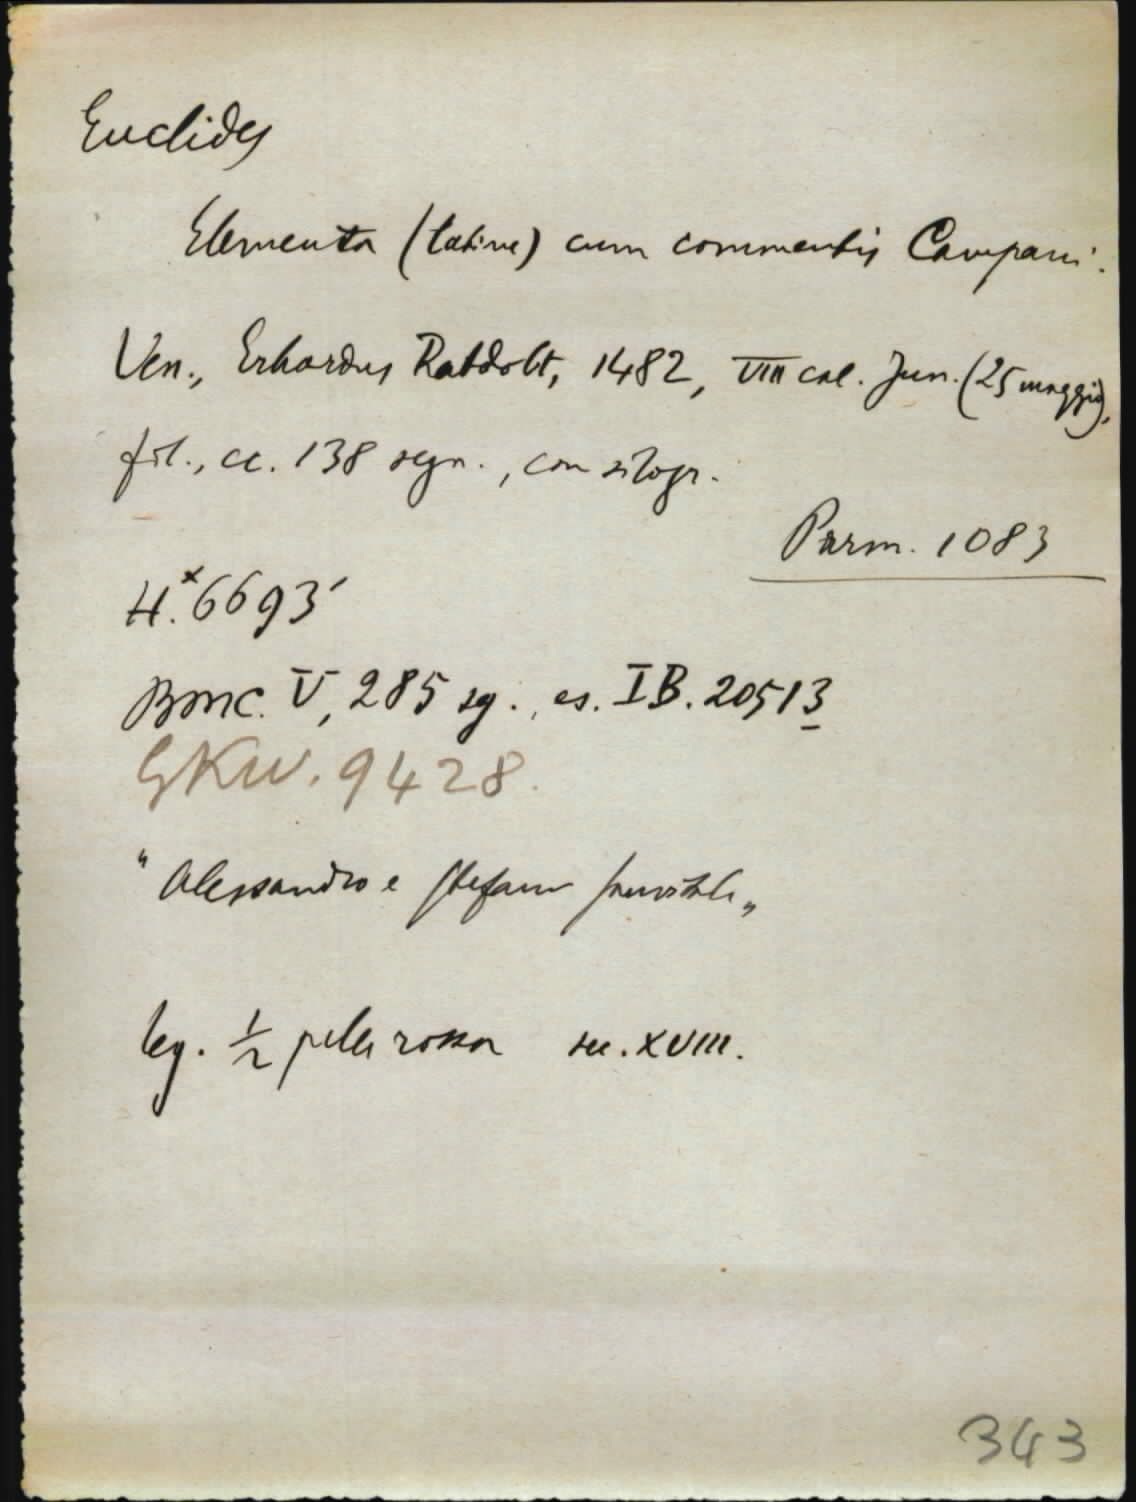 Euclides
Elementa (latine) cum commentis Campani.
Ven., Erhardus Ratdolt, 1482, VIII cal. Jun. (25 maggio),
fol., cc. 138 segn., con silogr.
Parm. 1083
H.x6693'
BMC. V, 285 sg., es. IB. 20513
GKW. 9428.
"Alessandro e Stefano Sanvitale"
leg. 1/2 pelle rossa sec. XVIII.
343